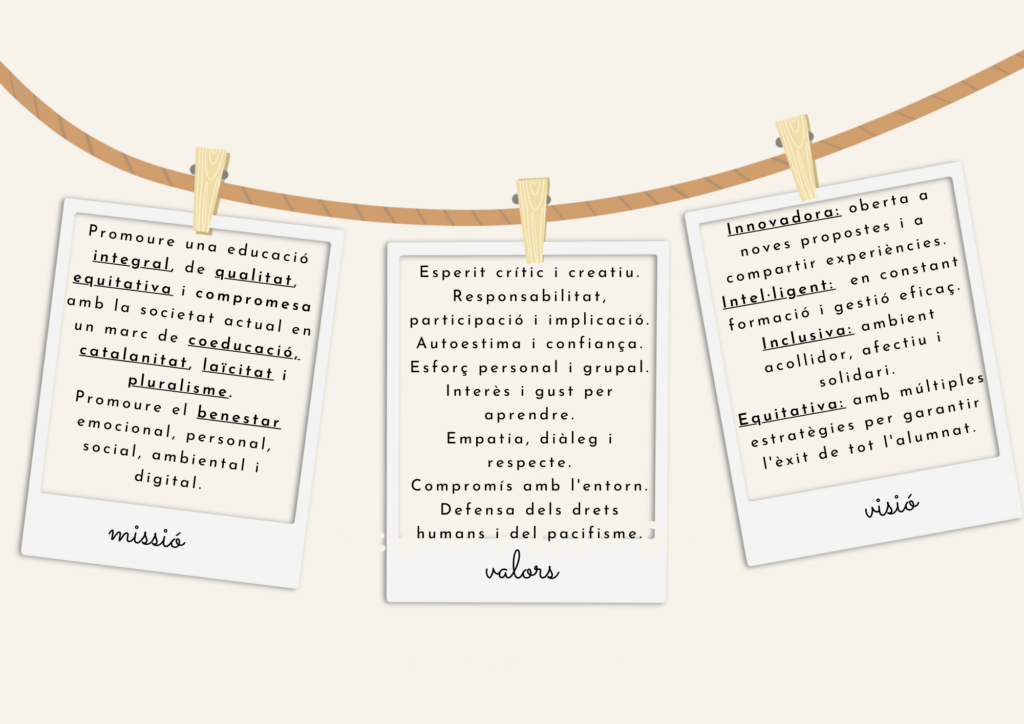 Promoure una educació
integral, de qualitat,
equitativa i compromesa
amb la societat actual en
un marc de coeducació,
catalanitat, laïcitat i
pluralisme.
Promoure el benestar
emocional, personal,
social, ambiental i
digital.
missió
Esperit crític i creatiu.
Responsabilitat,
participació i implicació.
Autoestima i confiança.
Esforç personal i grupal.
Interès i gust per
aprendre.
Empatia, diàleg i
respecte.
Compromís amb l'entorn.
Defensa dels drets
humans i del pacifisme.
valors
Innovadora: oberta a
noves propostes i a
compartir experiències.
Intel·ligent: en constant
formació i gestió eficaç.
Inclusiva: ambient
acollidor, afectiu i
solidari.
Equitativa: amb múltiples
estratègies per garantir
l'èxit de tot l'alumnat.
visió